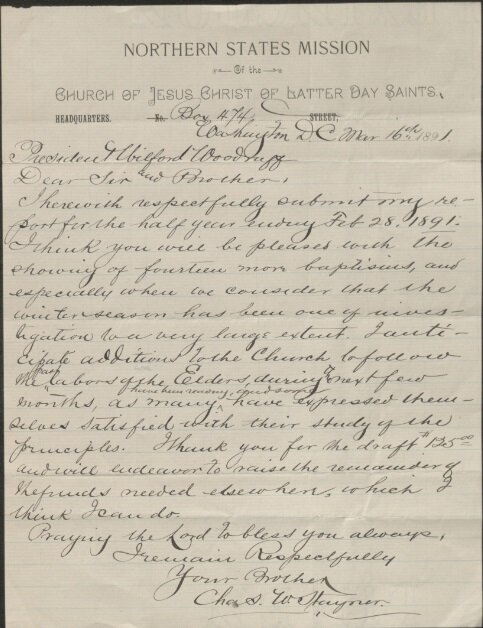 NORTHERN STATES MISSION
Of the
CHURCH OF JESUS CHRIST OF LATTER DAY SAINTS.
HEADQUARTERS. No. Box 474, STREET,
Washington D.C. Mar 16th 1891.
President Wilford Woodruff
Dear Sir and Brother,
I herewith respectfully submit my re-
port for the half year ending Feb 28. 1891.
I think you will be pleased with the
showing of fourteen more baptisms, and
especially when we consider that the
winter season has been one of inves-
tigation to a very large extent. I anti-
cipate additions to the Church to follow
the past labors of the Elders, during the next few
months, as many have expressed them-
selves satisfied with their study of the
principles. I thank you for the draft $135.00
and will endeavor to raise the remainder of
the funds needed elsewhere, which I
think I can do.
Praying the Lord to bless you always,
I remain Respectfully
Your Brother
Chas. W. Stayner.